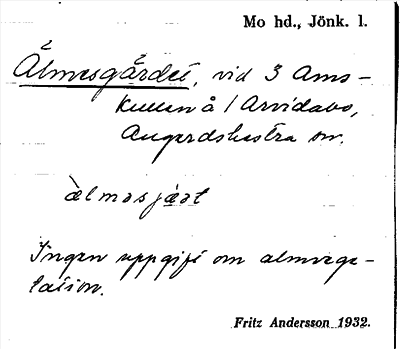 Mo hd., Jönk. l.
Älmesgärdet, vid 3 Ams-
kullen å / Arvidabo,
Angerdshestra sn.
àlmasjàat
Ingen uppgift om almvege-
tation.
Fritz Andersson 1932.